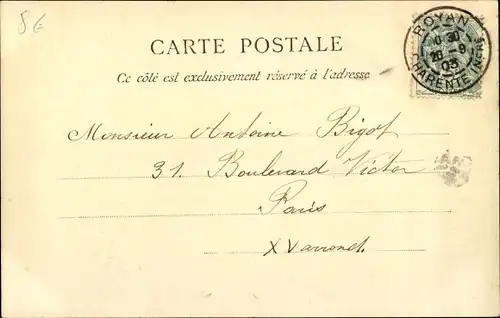 8€
CARTE POSTALE
Ce côté est exclusivement réservé à l'adresse
ROYAN
10 30
9
03
CHARENTE INFRE
Monsieur Antoine Bigot
31. Boulevard Victor
Paris